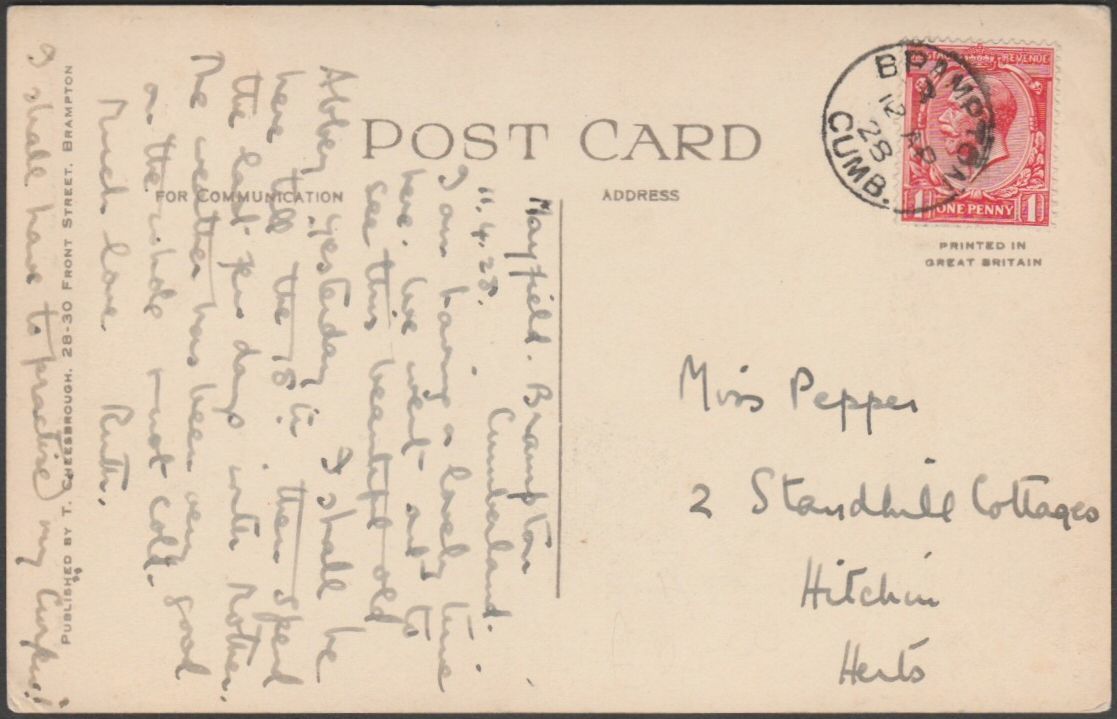 POST CARD
FOR COMMUNICATION
ADDRESS
BRAMPTON
12 AP
28
CUMB.
POSTAGE REVENUE
1 ONE PENNY 1
PRINTED IN
GREAT BRITAIN
Mayfield. Brampton
Cumberland.
11.4.28.
I am having a lovely time
here. We went out to
see this beautiful old
Abbey yesterday. I shall be
here till the 18th then spend
the last few days with Mother.
The weather has been very good
on the whole & not cold.
Much love. Ruth.
I shall have to practise my
PUBLISHED BY T. CHEESBROUGH, 28-30 FRONT STREET, BRAMPTON
Miss Pepper
2 Standhill Cottages
Hitchin
Herts